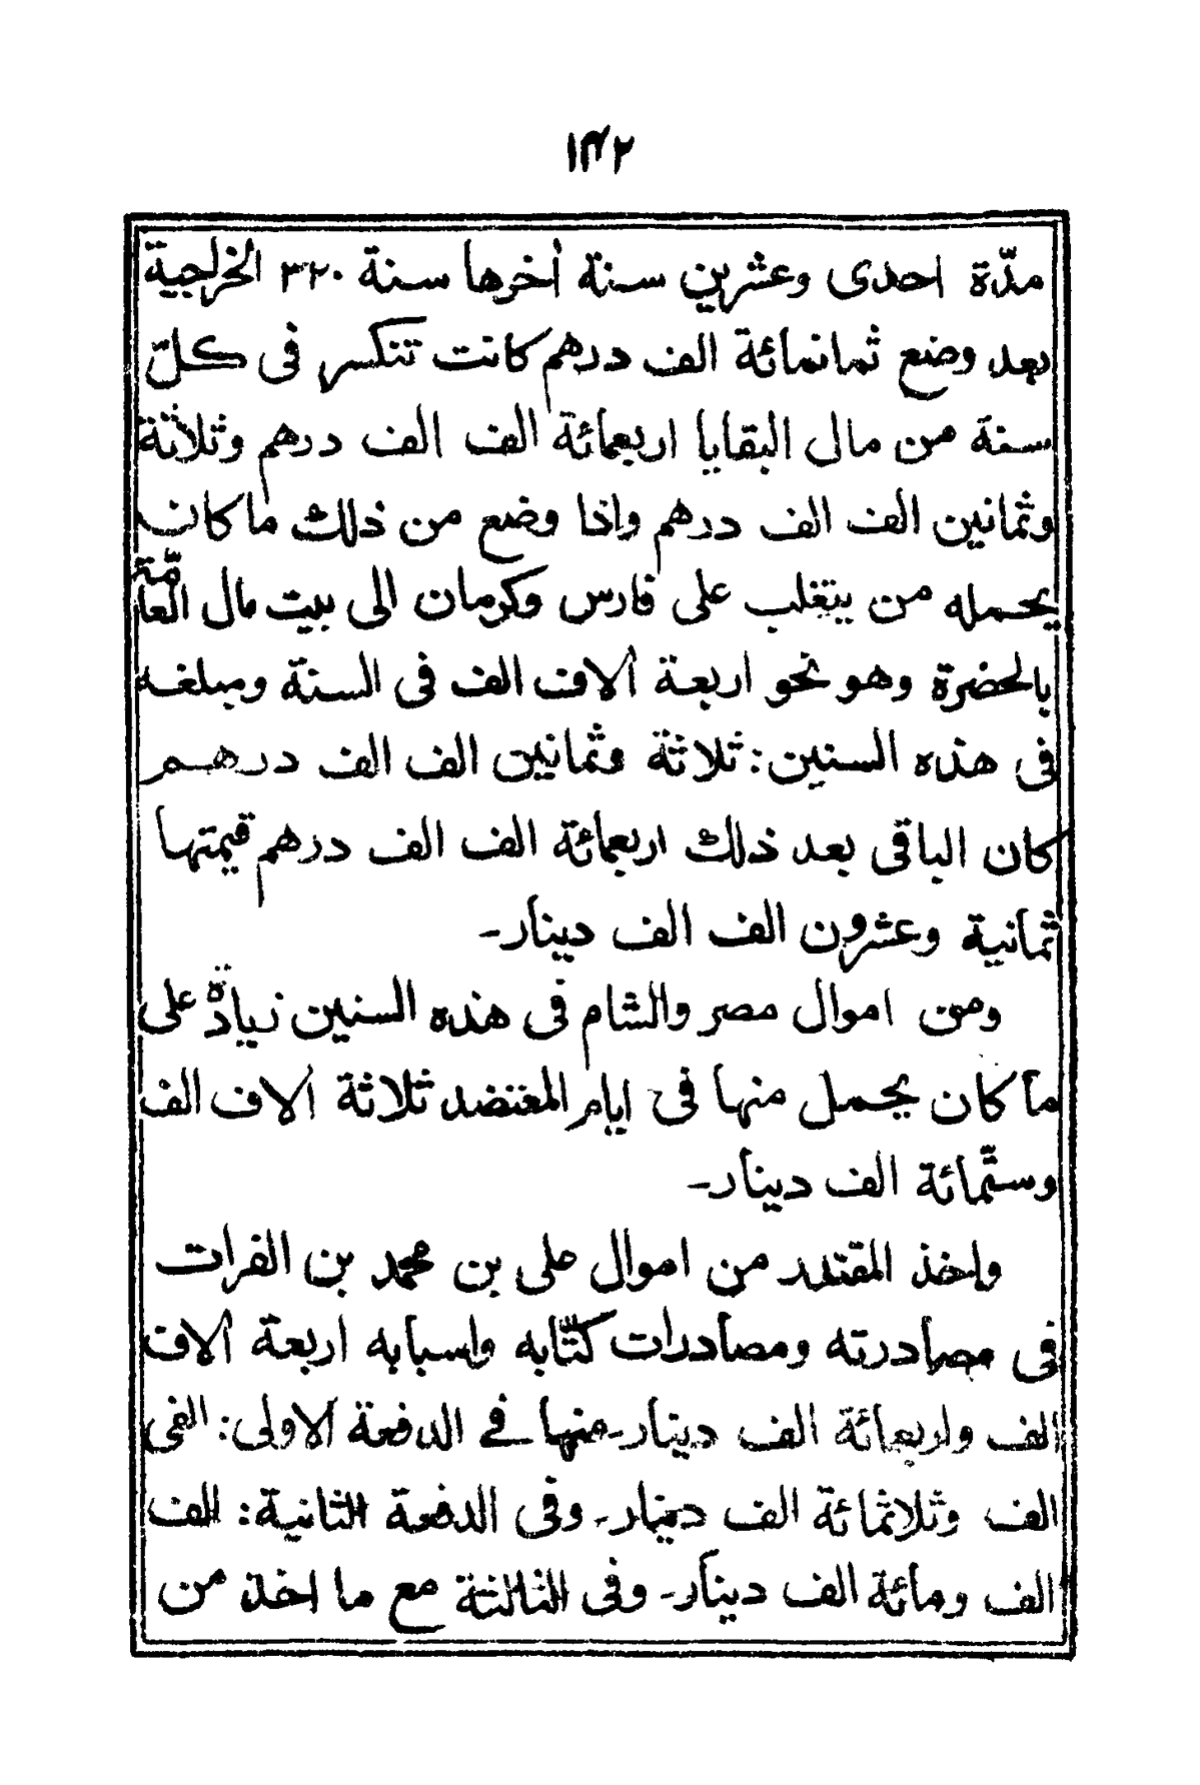 ١٤٢
مدّة احدى وعشرين سنة أخرها سنة ٣٢٠ الخراجية
بعد وضع ثمانمائة الف درهم كانت تنكسر فى كلّ
سنة من مال البقايا اربعمائة الف الف درهم وثلاثة
وثمانين الف الف درهم واذا وضع من ذلك ما كان
يحمله من يتغلب على فارس وكرمان الى بيت مال العامّة
بالحضرة وهو نحو اربعة ألاف الف فى السنة ومبلغه
فى هذه السنين: ثلاثة وثمانين الف الف درهم
كان الباقى بعد ذلك اربعمائة الف الف درهم قيمتها
ثمانية وعشرون الف الف دينار-
ومن اموال مصر والشام فى هذه السنين زيادة على
ما كان يحمل منها فى ايام المعتضد ثلاثة ألاف الف
وستّمائة الف دينار-
واخذ المقتدر من اموال على بن محمد بن الفرات
فى مصادرته ومصادرات كتّابه واسبابه اربعة ألاف
الف واربعمائة الف دينار-منها فے الدفعة الاولى: الفى
الف وثلاثمائة الف دينار- وفى الدفعة الثانية: الف
الف ومائة الف دينار- وفى الثالثة مع ما اخذ من